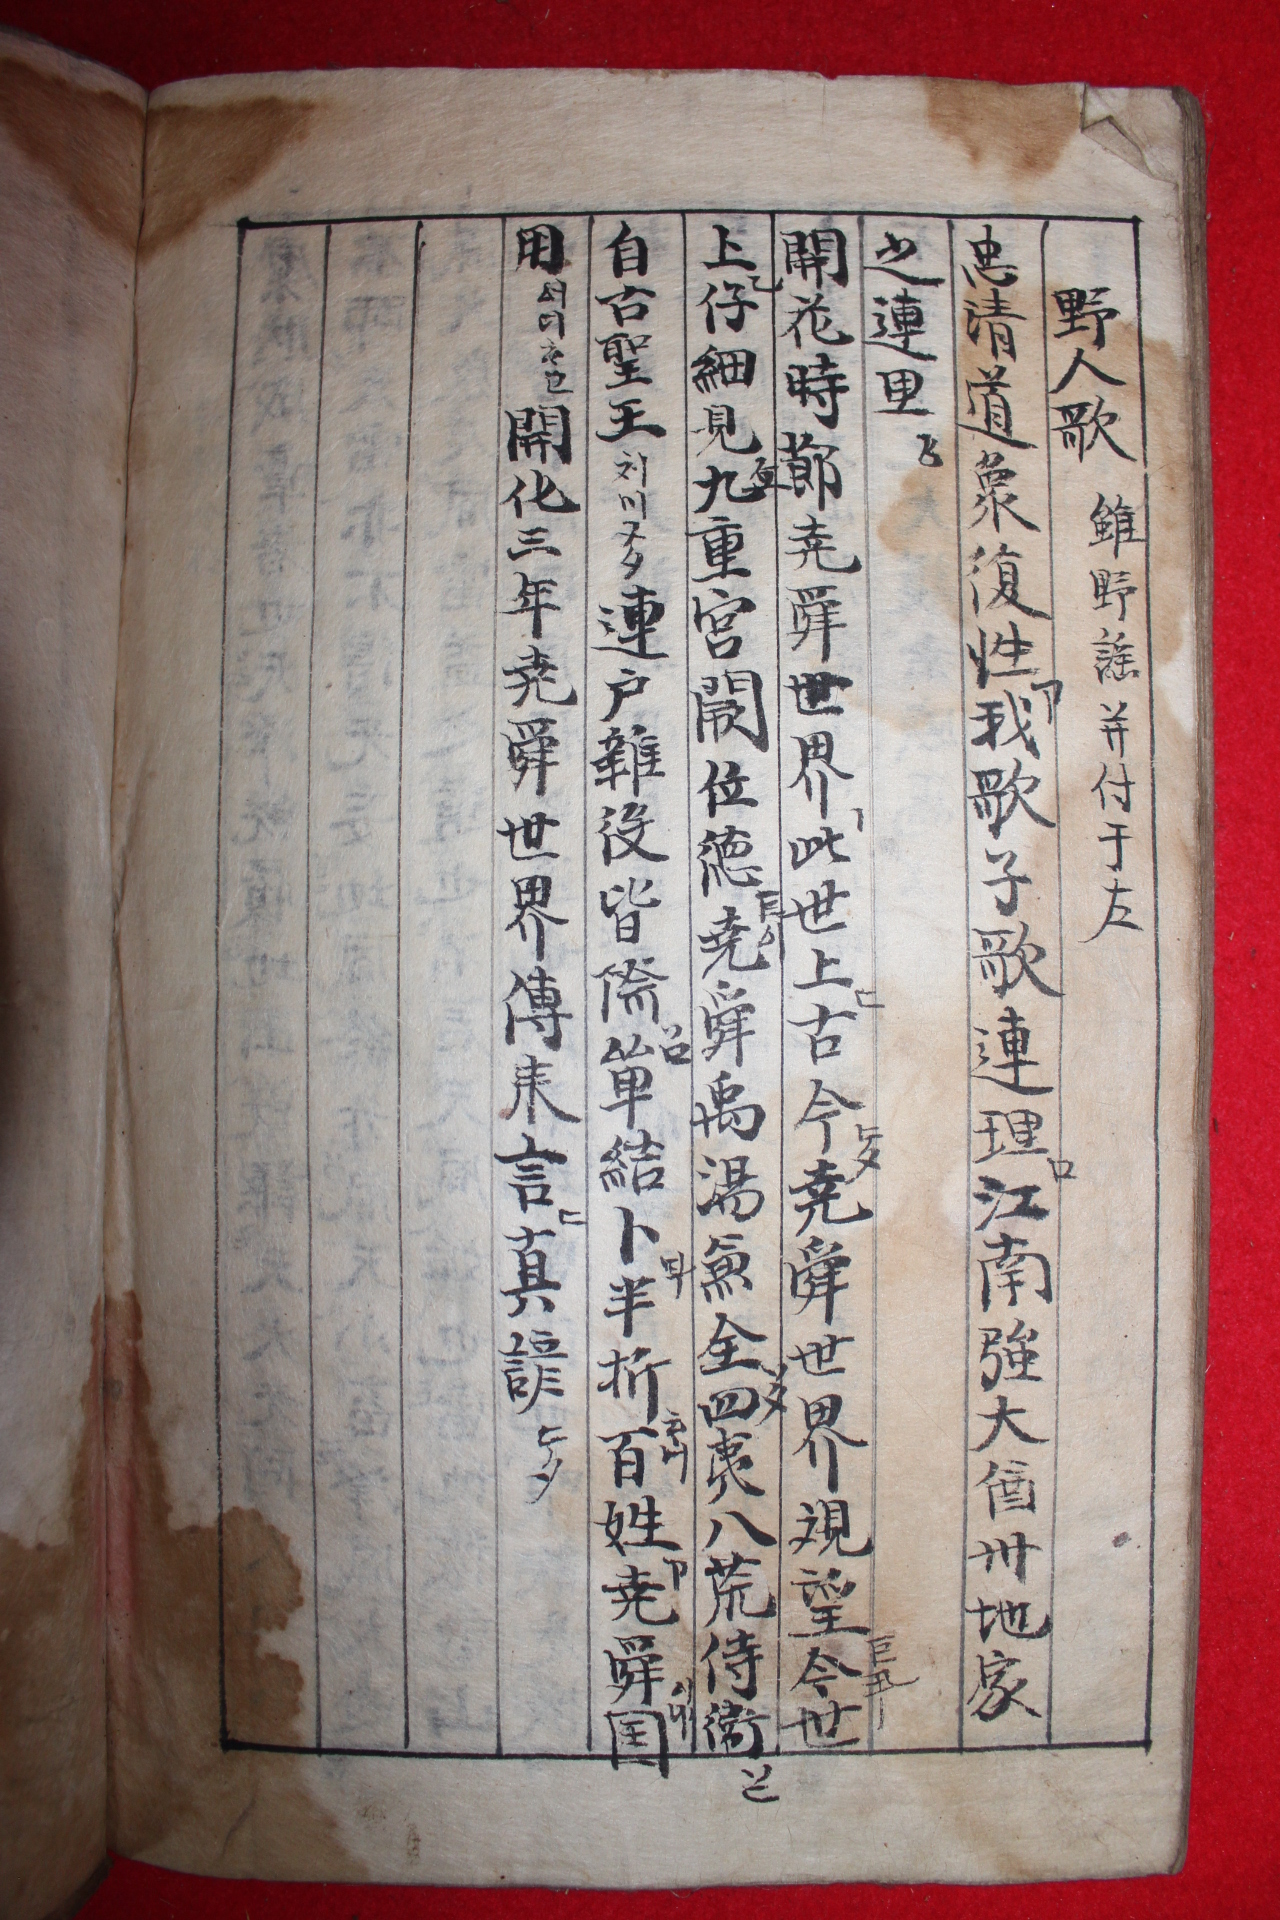 野人歌 雖野謠并付于左
忠清道衆復性ア我歌子歌連理ロ江南強大酋卅地家
之連里
開花時節堯舜世界此世上古今堯舜世界視望今世
上仔細見九重宮闕位德堯舜禹湯兼全四夷八荒侍衛
自古聖王치미又夕連戶雜役皆除單結卜半折百姓堯舜国
用開化三年堯舜世界傳来言真諺